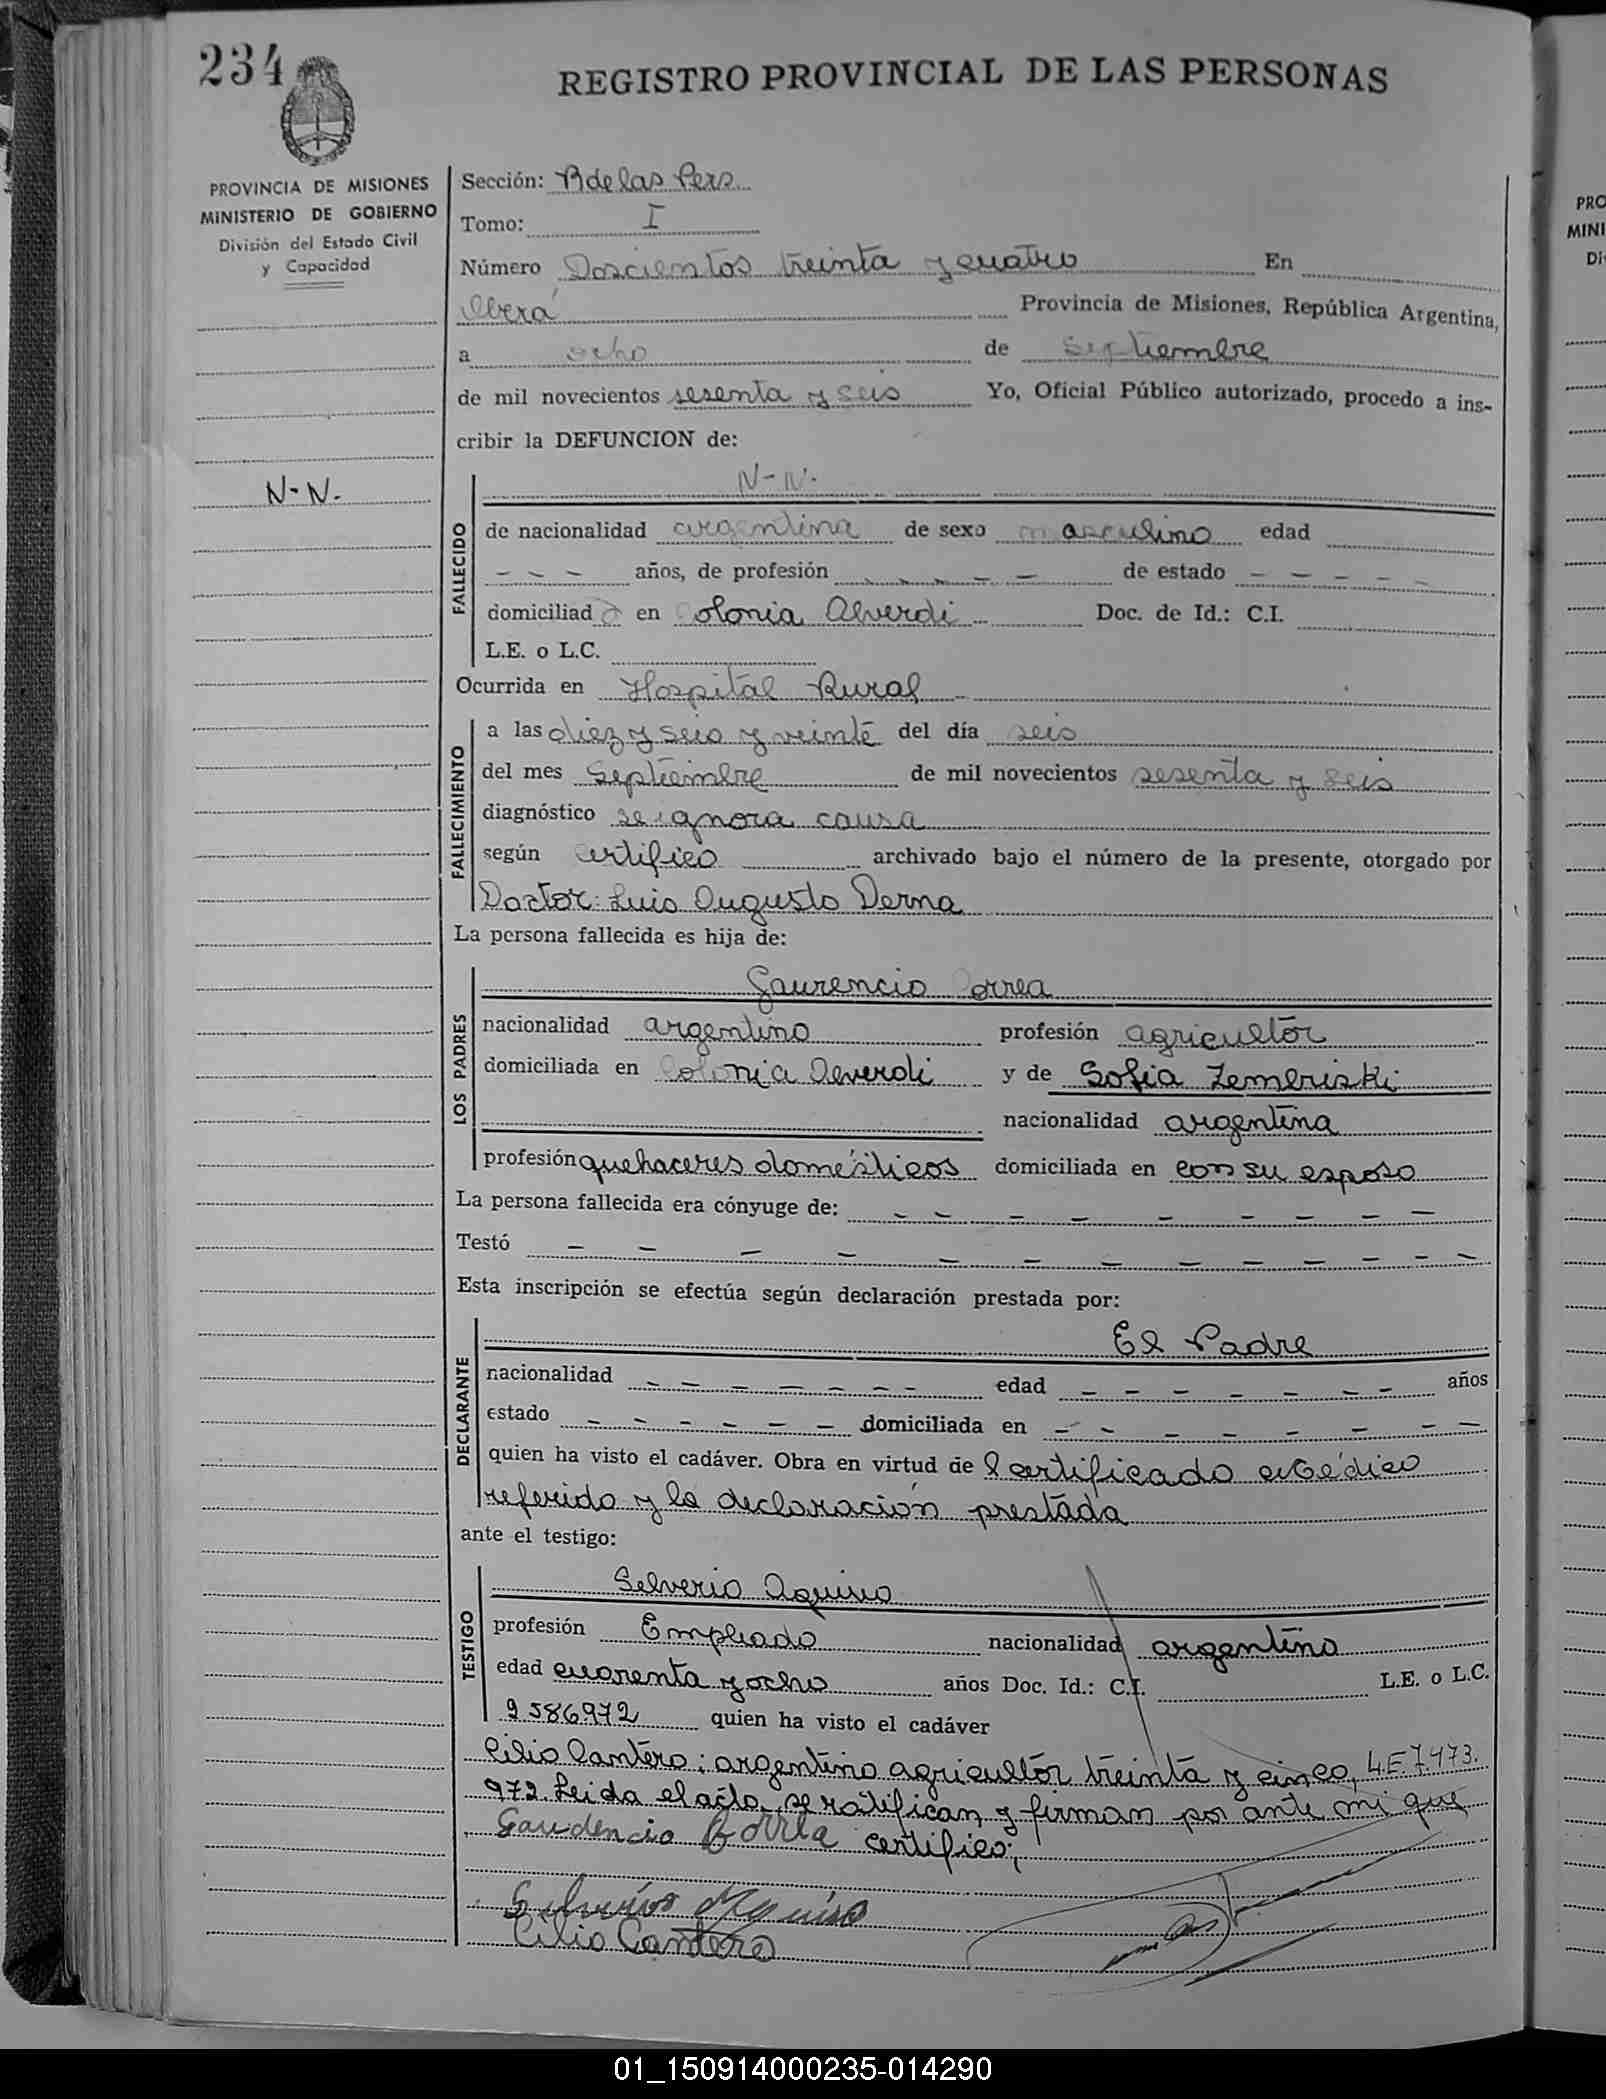 234
REGISTRO PROVINCIAL DE LAS PERSONAS
PROVINCIA DE MISIONES
MINISTERIO DE GOBIERNO
División del Estado Civil
y Capacidad
N-N.
Sección: R de las Pers.
Tomo: I
Número Doscientos treinta y cuatro En
Oberá Provincia de Misiones, República Argentina,
a ocho de Septiembre
de mil novecientos sesenta y seis Yo, Oficial Público autorizado, procedo a ins-
cribir la DEFUNCION de:
N-N.
FALLECIDO
de nacionalidad argentina de sexo masculino edad
- - - años, de profesión - - - - - de estado - - - - -
domiciliado en Colonia Alverdi - Doc. de Id.: C.I.
L.E. o L.C.
Ocurrida en Hospital Rural -
FALLECIMIENTO
a las diez y seis y veinte del día seis
del mes Septiembre de mil novecientos sesenta y seis
diagnóstico se ignora causa
según certifico archivado bajo el número de la presente, otorgado por
Doctor: Luis Augusto Derna
La persona fallecida es hija de:
LOS PADRES
Gaurencio Correa
nacionalidad argentino profesión agricultor
domiciliada en Colonia Alverdi y de Sofia Zembriski
nacionalidad argentina
profesión quehaceres domésticos domiciliada en con su esposo
La persona fallecida era cónyuge de: - - - - - - - - -
Testó - - - - - - - - - - - - -
Esta inscripción se efectúa según declaración prestada por:
DECLARANTE
El Padre
nacionalidad - - - - - - - edad - - - - - - - años
estado - - - - - - domiciliada en - - - - - - -
quien ha visto el cadáver. Obra en virtud de l certificado médico
referido y la declaración prestada
ante el testigo:
TESTIGO
Selverio Aquino
profesión Empleado nacionalidad argentino
edad cuarenta y ocho años Doc. Id.: C.I. L.E. o L.C.
9586972 quien ha visto el cadáver
Cilio Cantero; argentino agricultor treinta y cinco, L.E. 7.473.
972. Leida el acto, se ratifican, y firman por ante mi que
Gaudencio Correa certifico;
Silverio Aquino
Cilio Cantero
PRO
MINI
Di
01_150914000235-014290